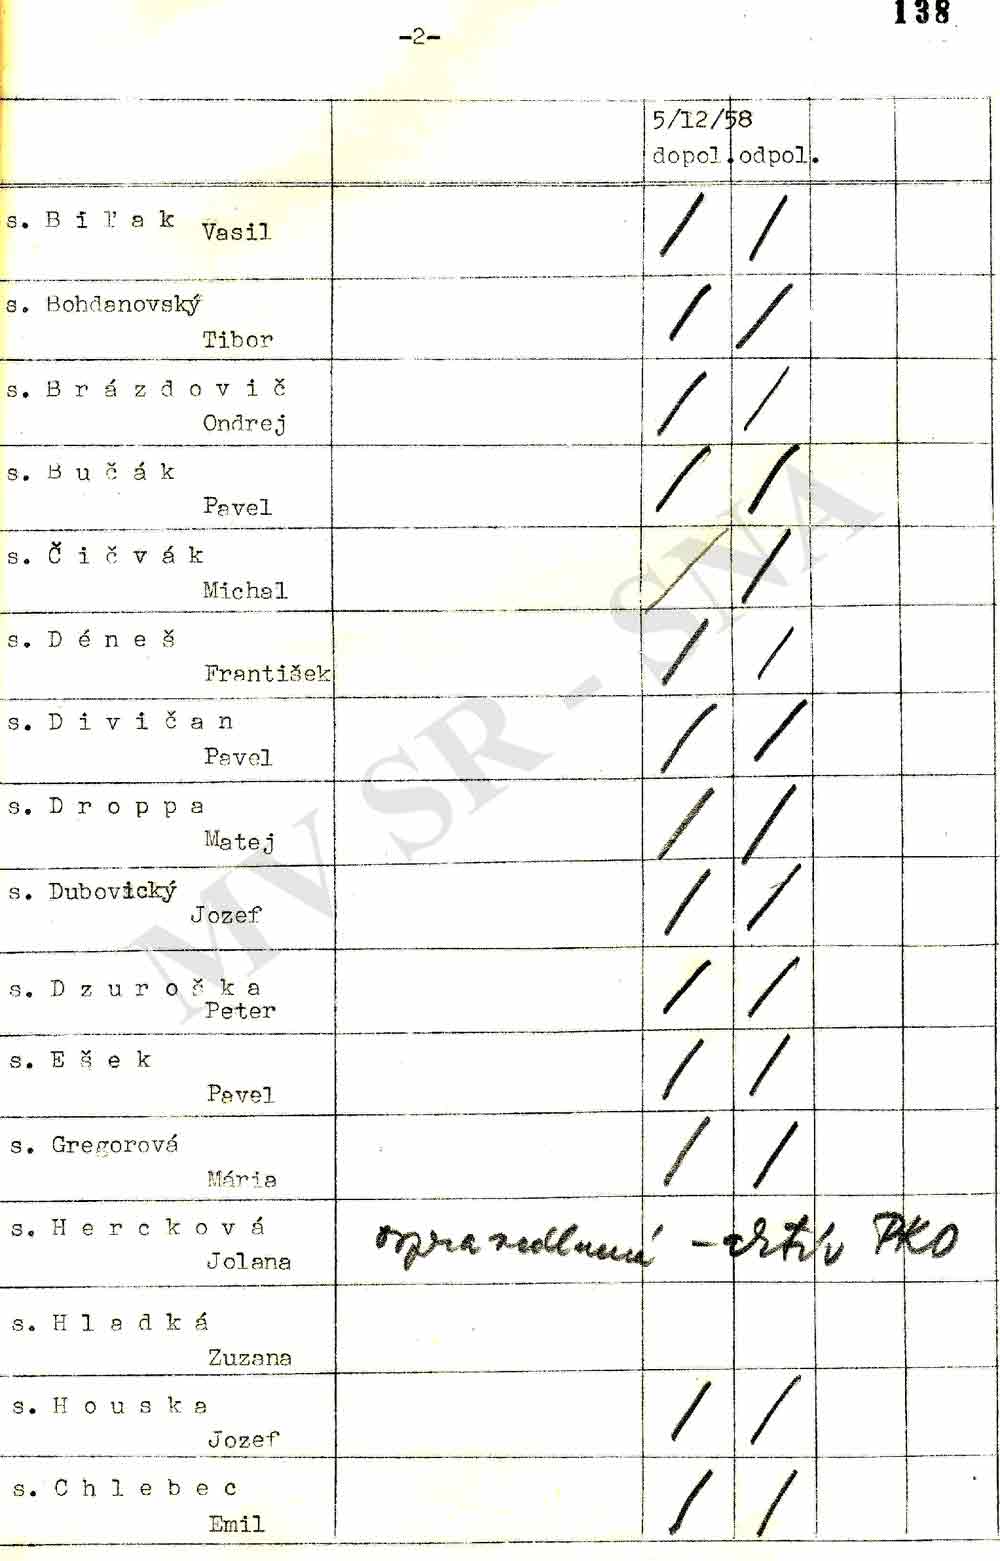 138
-2-
5/12/58
dopol. odpol.
s. B i ľ a k Vasil
s. Bohdanovský
Tibor
s. B r á z d o v i č
Ondrej
s. B u č á k
Pavel
s. Č i č v á k
Michal
s. D é n e š
František
s. D i v i č a n
Pavel
s. D r o p p a
Matej
s. Dubovický
Jozef
s. D z u r o š k a
Peter
s. E š e k
Pavel
s. Gregorová
Mária
s. H e r c k o v á
Jolana
ospravedlnená - aktív PKO
s. H l a d k á
Zuzana
s. H o u s k a
Jozef
s. C h l e b e c
Emil
MV SR - SNA